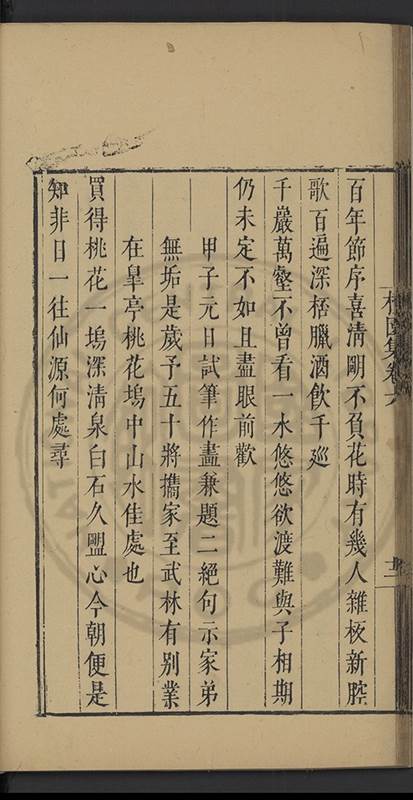 百年節序喜清明不負花時有幾人雜板新腔
歌百遍深桮臘酒飲千廵
千巖萬壑不曾看一水悠悠欲渡難與子相期
仍未定不如且盡眼前歡
甲子元日試筆作畫兼題二絕句示家弟
無垢是歲予五十將攜家至武林有別業
在臯亭桃花塢中山水佳處也
買得桃花一塢深清泉白石久盟心今朝便是
知非日一往仙源何處尋
集卷六